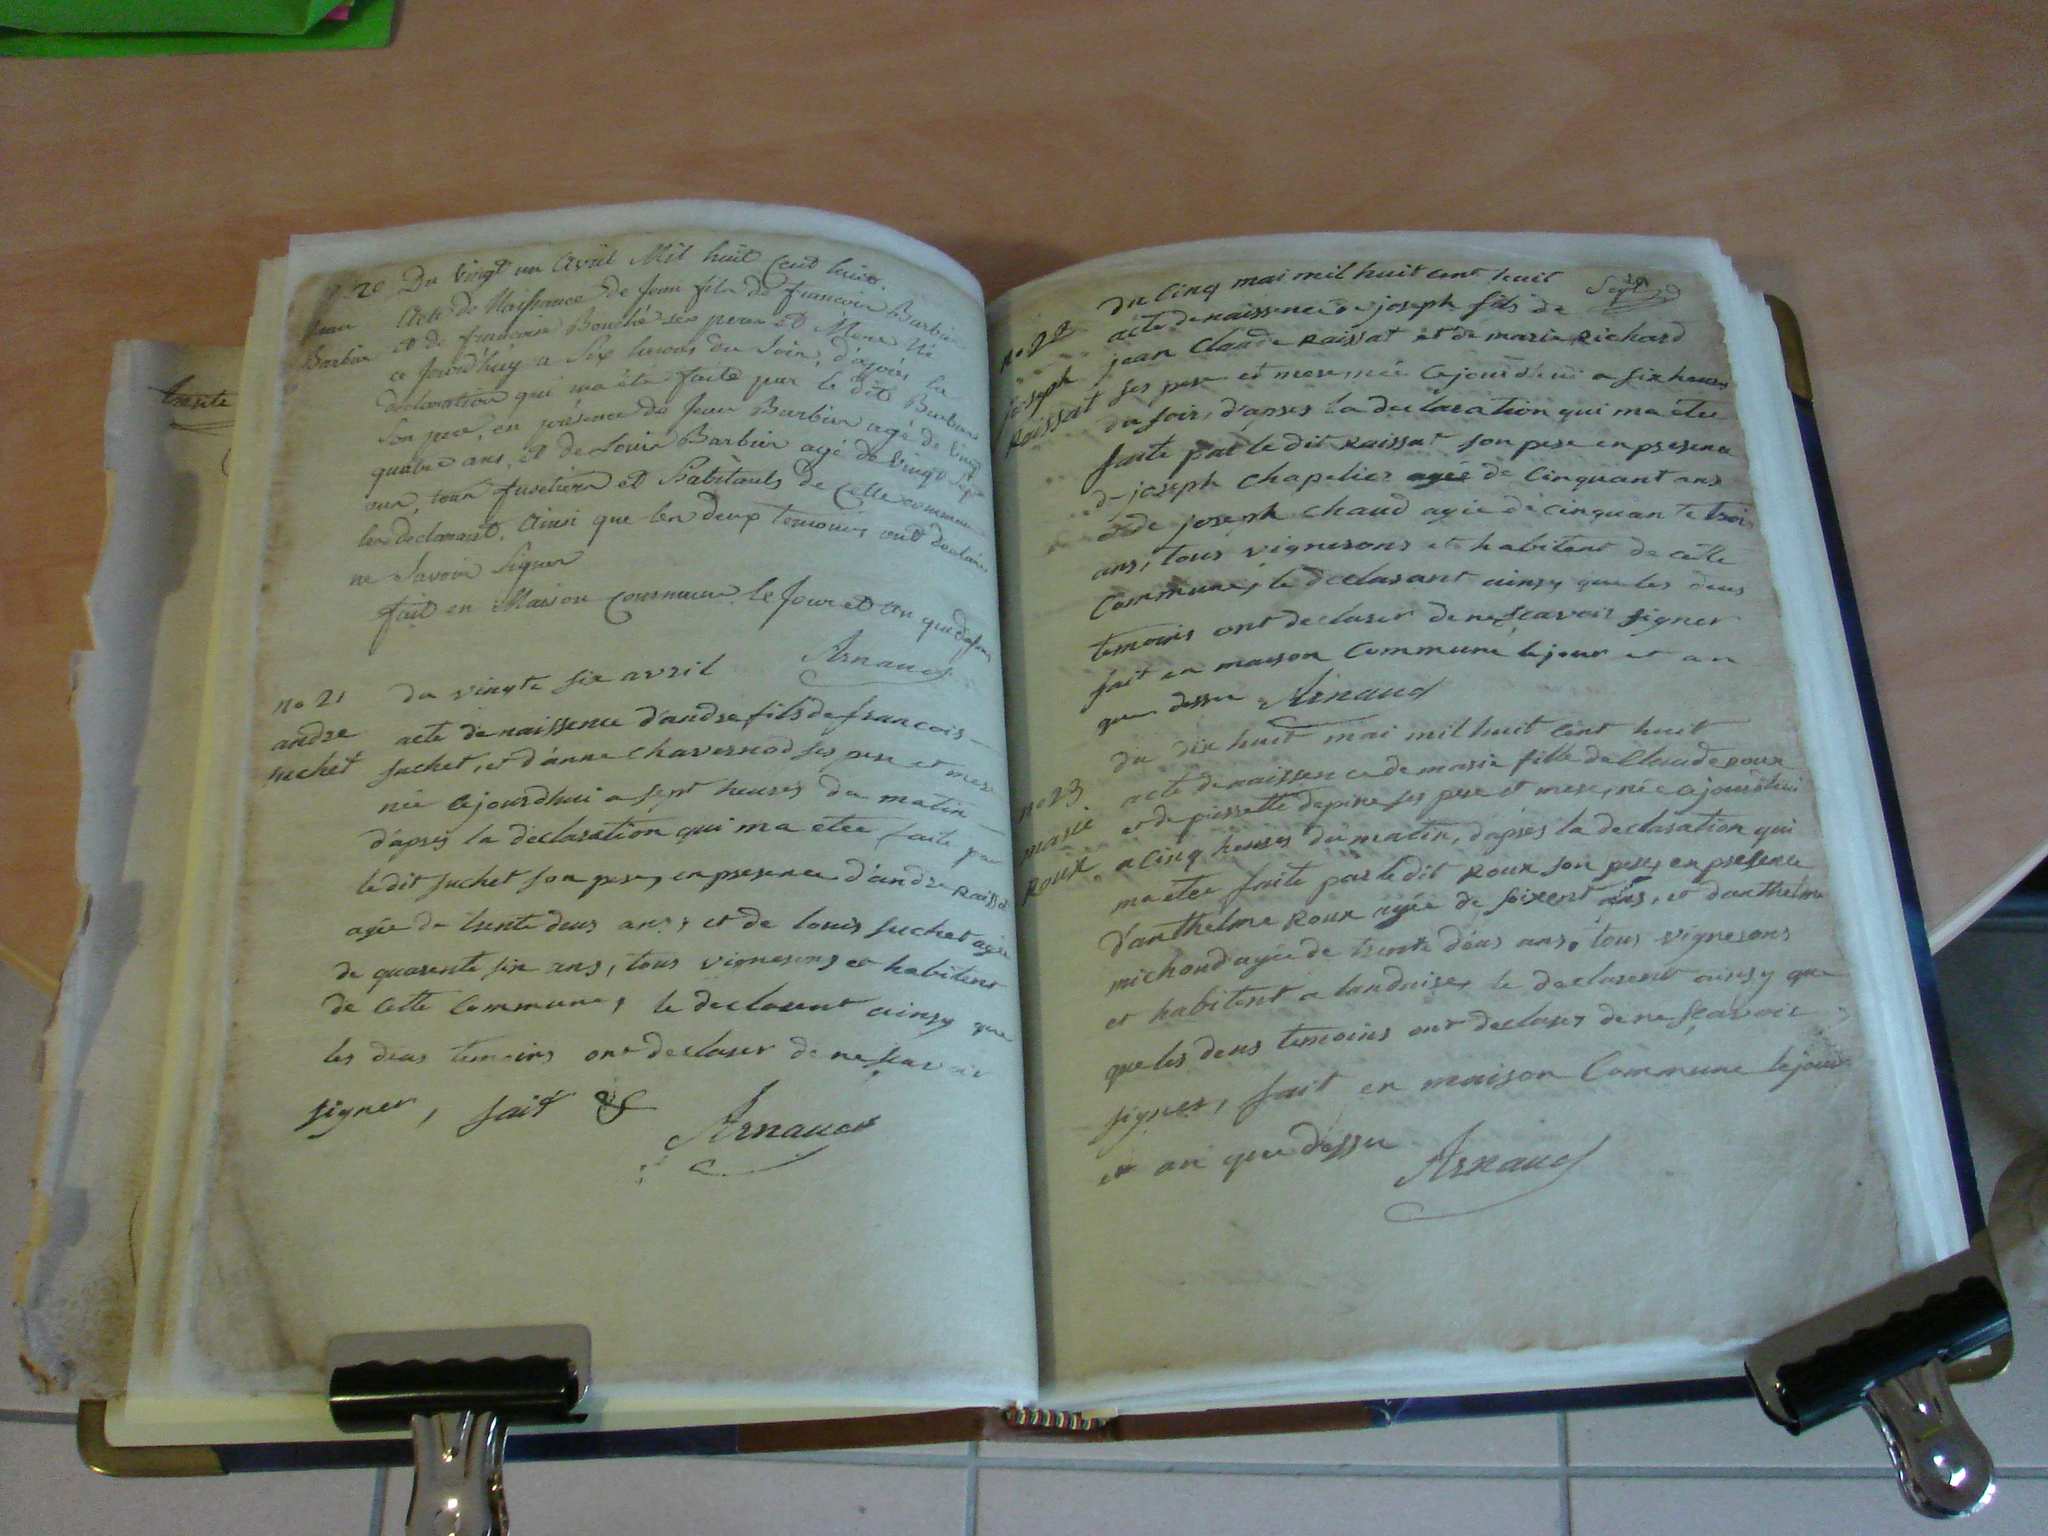 transite
20 Du vingt un Avril Mil huit Cent huit.
Jean
Barbier
Acte de Naissance de Jean fils de francois Barbier
et de francoise Bouché ses pere et Mere Né
ce Jourd'huy a Six heures du Soir, d'après la
declaration qui m'a été faite par le dit Barbier
Son pere, en présence de Jean Barbier agé de vingt
quatre ans, et de Louis Barbier agé de vingt Sept
ans, tous et habitants de cette commune
les declarant, Ainsi que les deux temoins ont declaré
ne Savoir Signer
fait en Maison Commune le Jour et an que dessus
Arnaud
no 21 du vingte six avril
andre
suchet
acte de naissence d'andre fils de francois
suchet, et d'anne chavernod ses pere et mere
née cejourdhui a sept heures du matin
d'apres la declaration qui ma etee faite par
le dit suchet son pere, en presence d'andre raissat
agée de trente deus ans, et de louis suchet agée
de quarente six ans, tous vignerons et habitent
de cette Commune, le declarent ainsy que
les deus temoins ont declarer de ne scavoir
signer, fait &
Arnaud
du cinq mai mil huit cent huit
Sept
no 22
joseph
Raissat
acte de naissence de joseph fils de
jean Claude Raissat et de marie Richard
ses pere et mere, née cejourd'ui a six heures
du soir, d'apres la declaration qui ma etee
faite par le dit Raissat son pere en presence
de joseph Chapelier agée de Cinquant ans
et de joseph Chaud agée de cinquante trois
ans, tous vignerons et habitent de cette
Commune, le declarant ainsy que les deus
temoins ont declarer de ne scavoir signer
fait en maison Commune le jour et an
que dessu Arnaud
du dix huit mai mil huit Cent huit
no 23
marie
Roux
acte de naissence de marie fille de Claude roux
et de pierrette depine ses pere et mere, née cejourd'hui
a Cinq heures du matin, d'apres la declaration qui
ma etee faite par le dit Roux son pere, en presence
d'anthelme Roux agée de soixent ans, et d'anthelme
michoud agée de trente deus ans, tous vignerons
et habitent a landaise, le declarent ainsy que
que les deus temoins ont declarer de ne scavoir
signer, fait en maison Commune le jour
et an que dessu
Arnaud